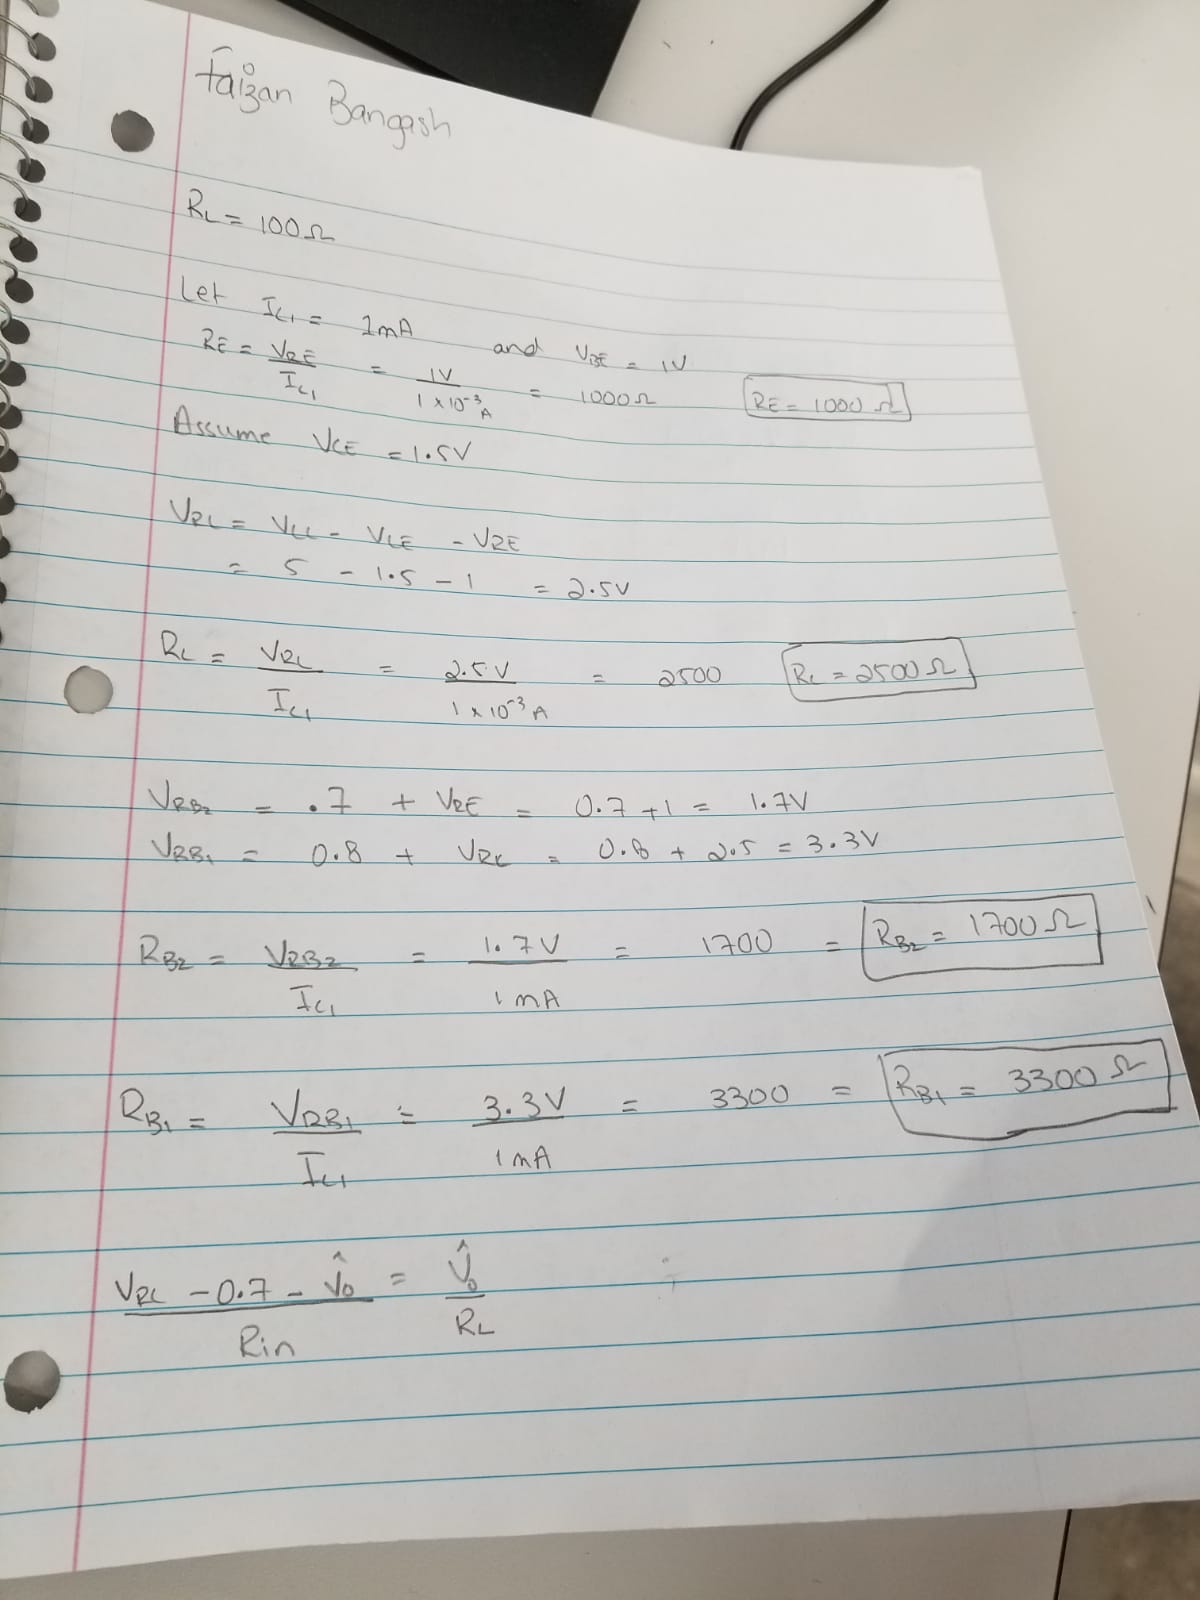 Faizan Bangash
RL = 100Ω
Let IC1 = 1mA and VRE = 1V
RE = VRE / IC1 = 1V / 1 x 10^-3 A = 1000Ω RE = 1000 Ω
Assume VCE = 1.5V
VRC = VCC - VCE - VRE
= 5 - 1.5 - 1 = 2.5V
RC = VRC / IC1 = 2.5V / 1 x 10^-3 A = 2500 RC = 2500 Ω
VRB2 = .7 + VRE = 0.7 + 1 = 1.7V
VRB1 = 0.8 + VRC = 0.8 + 2.5 = 3.3V
RB2 = VRB2 / IC1 = 1.7V / 1mA = 1700 = RB2 = 1700 Ω
RB1 = VRB1 / IC1 = 3.3V / 1mA = 3300 = RB1 = 3300 Ω
VRC - 0.7 - V̂o / Rin = V̂o / RL